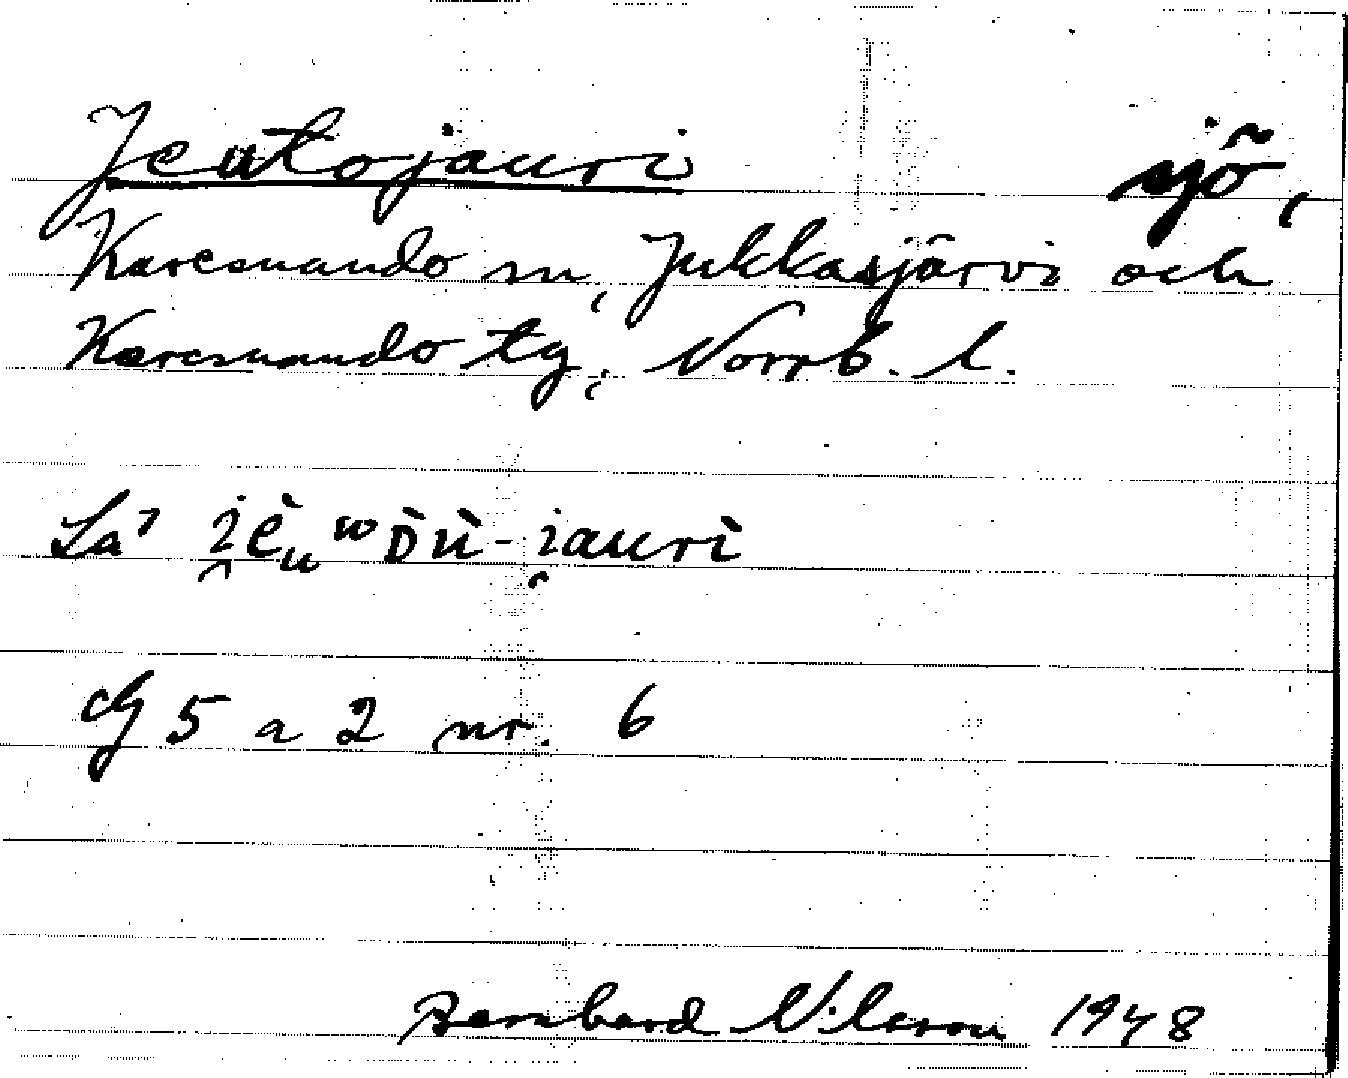 Jeutojauri sjö,
Karesuando sn, Jukkasjärvi och
Karesuando tg, Norrb. l.
La' i̯èu wᴅ̀ù-i̯aurì
Cf 5 a 2 nr. 6
Bernhard Nilsson 1948